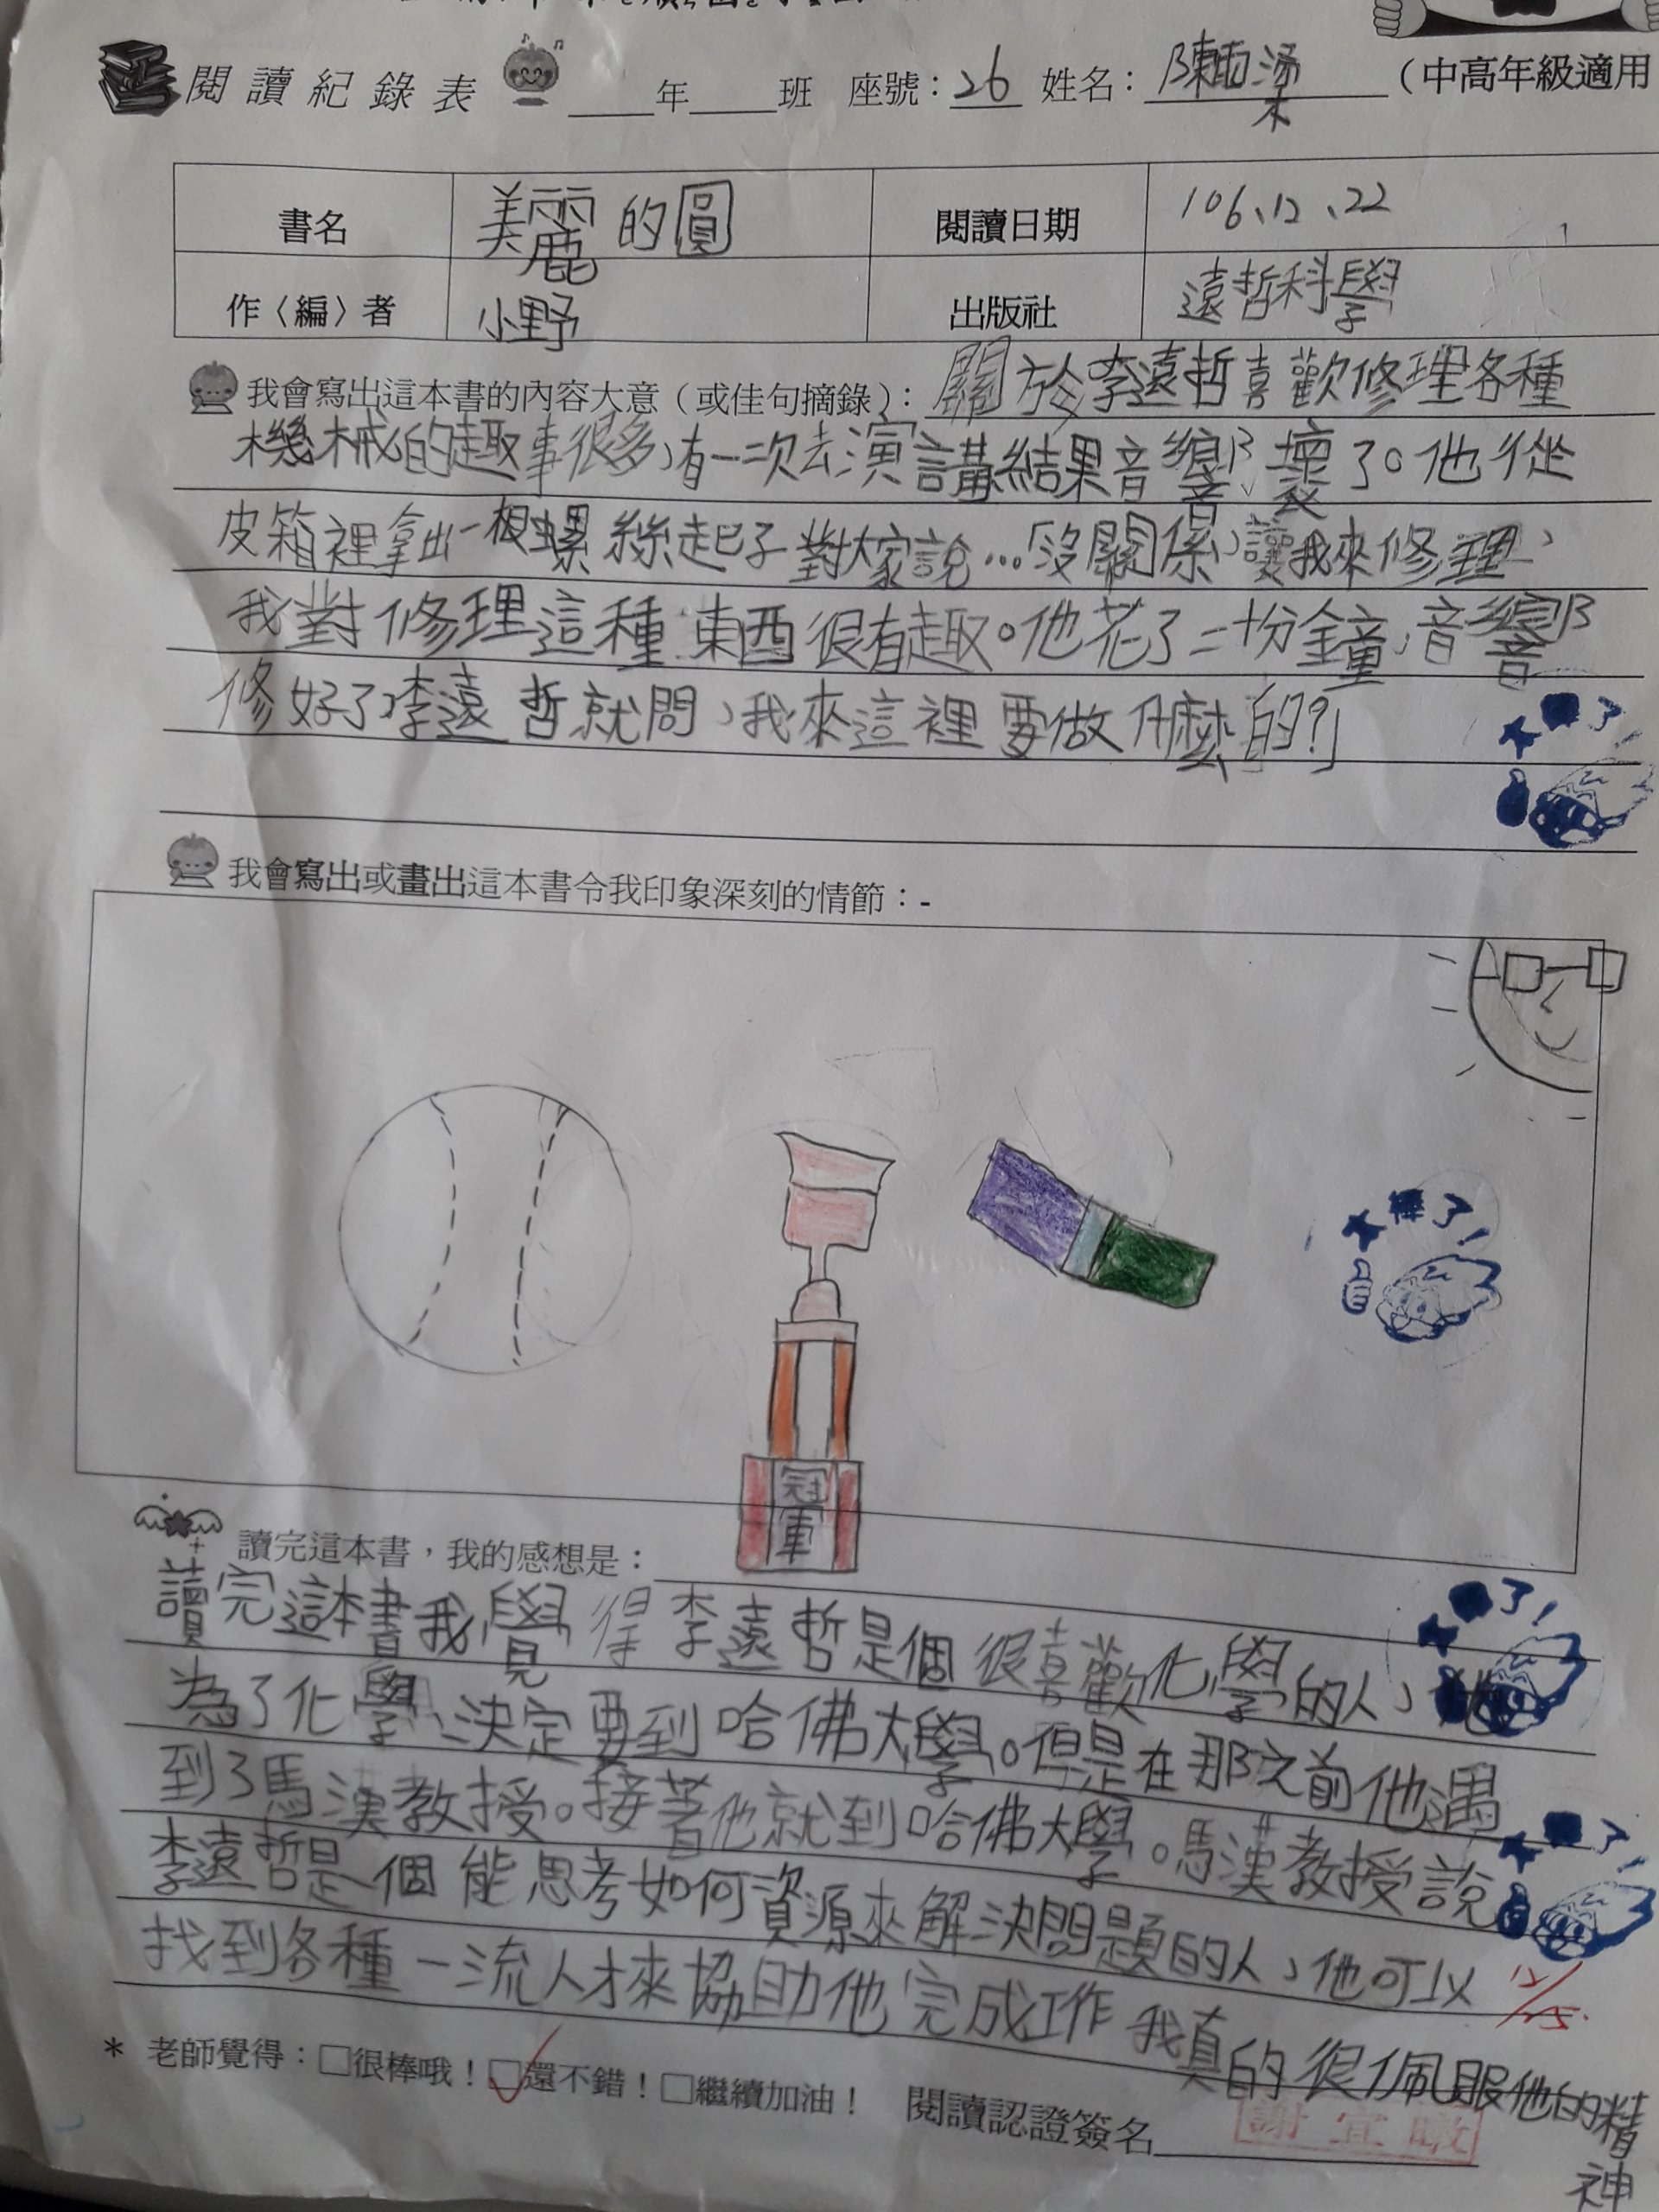 閱讀紀錄表 ____年____班 座號：26 姓名：陳 （中高年級適用
書名 美麗的圓 閱讀日期 106、12、22
作〈編〉者 小野 出版社 遠哲科學
我會寫出這本書的內容大意（或佳句摘錄）：關於李遠哲喜歡修理各種
機械的趣事很多，有一次去演講結果音響壞了。他從
皮箱裡拿出一根螺絲起子對大家說…「沒關係，讓我來修理，
我對修理這種東西很有趣。他花了二十分鐘，音響
修好了，李遠哲就問，我來這裡要做什麼的?」
太棒了!
我會寫出或畫出這本書令我印象深刻的情節：-
太棒了!
冠軍
讀完這本書，我的感想是：
讀完這本書我覺得李遠哲是個很喜歡化學的人，他
為了化學、決定要到哈佛大學。但是在那之前他遇
到了馬漢教授。接著他就到哈佛大學。馬漢教授說
李遠哲是一個能思考如何資源來解決問題的人，他可以
找到各種一流人才來協助他完成工作我真的很佩服他的精神
太棒了!
太棒了!
12/25.
* 老師覺得：□很棒哦！☑還不錯！□繼續加油！ 閱讀認證簽名____
謝宜